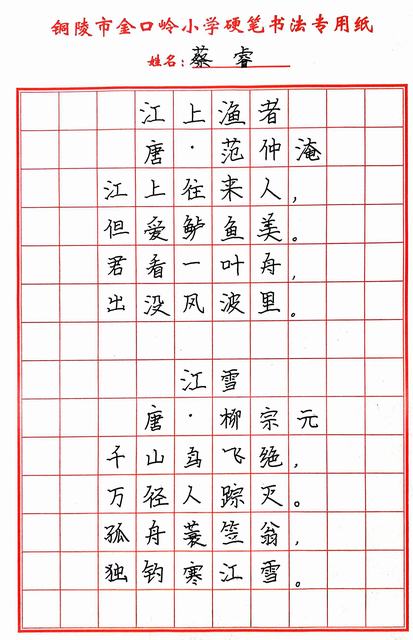 铜陵市金口岭小学硬笔书法专用纸
姓名：蔡睿
江上渔者
唐·范仲淹
江上往来人，
但爱鲈鱼美。
君看一叶舟，
出没风波里。
江雪
唐·柳宗元
千山鸟飞绝，
万径人踪灭。
孤舟蓑笠翁，
独钓寒江雪。